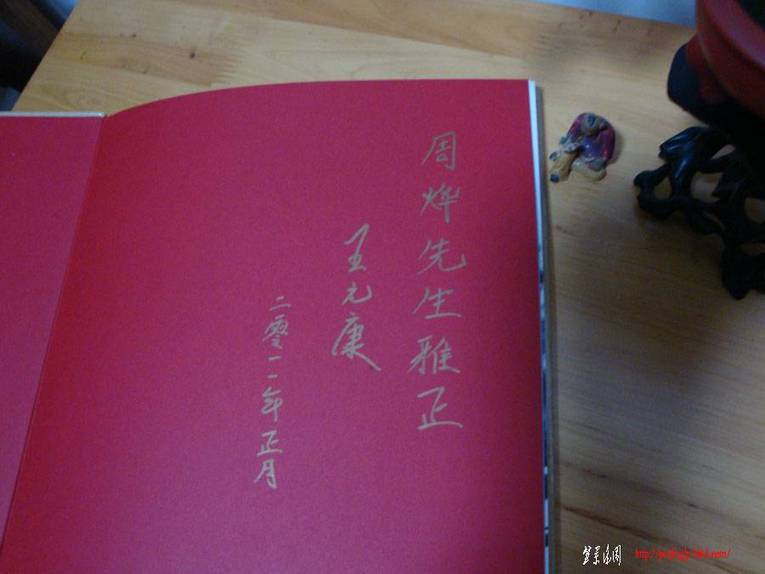 周烨先生雅正
王元康
二零一一年正月